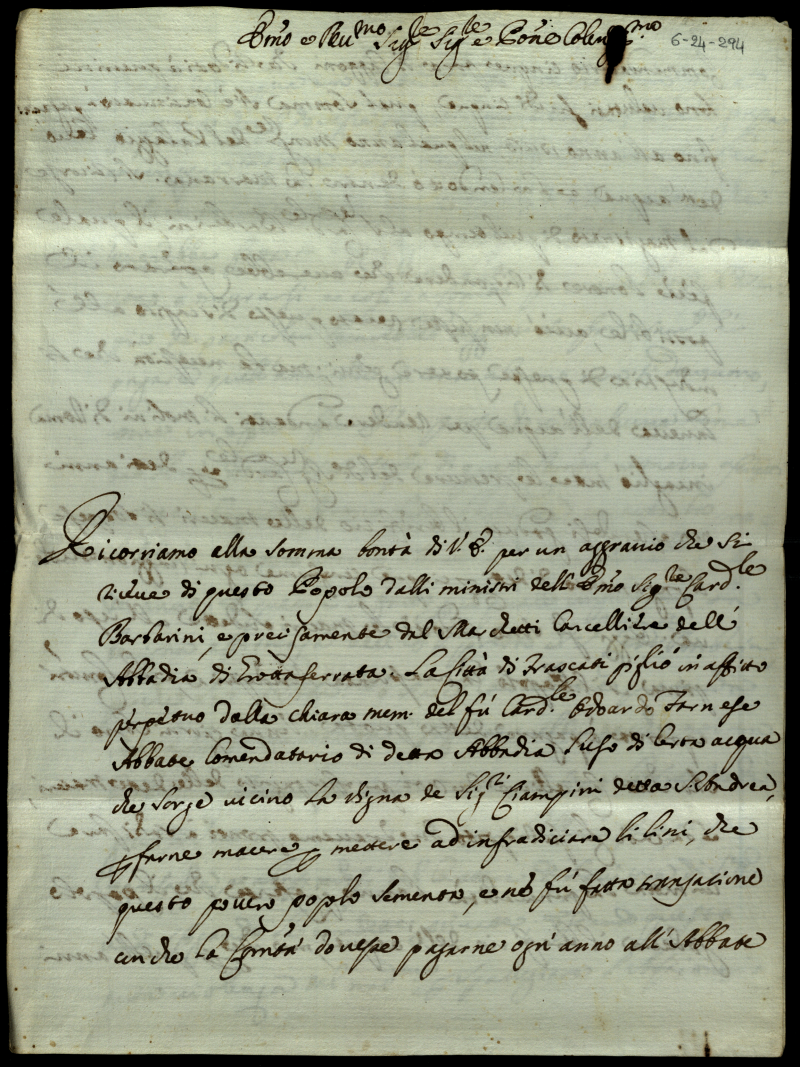 Emo e Reumo Sigre Sigre e Prone Colendmo
6-24-294
Ricorriamo alla somma bontà di V. E. per un aggrauio che si
riceue di questo Popolo dalli ministri dell' Emo Sigre Cardle
Barbarini, e precisamente dal Marchetti Cancelliere dell'
Abbadia di Grottaferrata. La Città di Frascati pigliò in affitto
perpetuo dalla chiara mem. del fù Cardle Edoardo Farnese
Abbate Comendatario di detta Abbadia l'uso di certa acqua
che sorge uicino la Vigna de Sigri Ciampini detta S. Andrea,
p farne macere p mettere ad infradiciare li lini, che
questo pouero popolo sementa, e ne fù fatta transatione
che la Comtà douesse pagarne ogn' anno all' Abbate